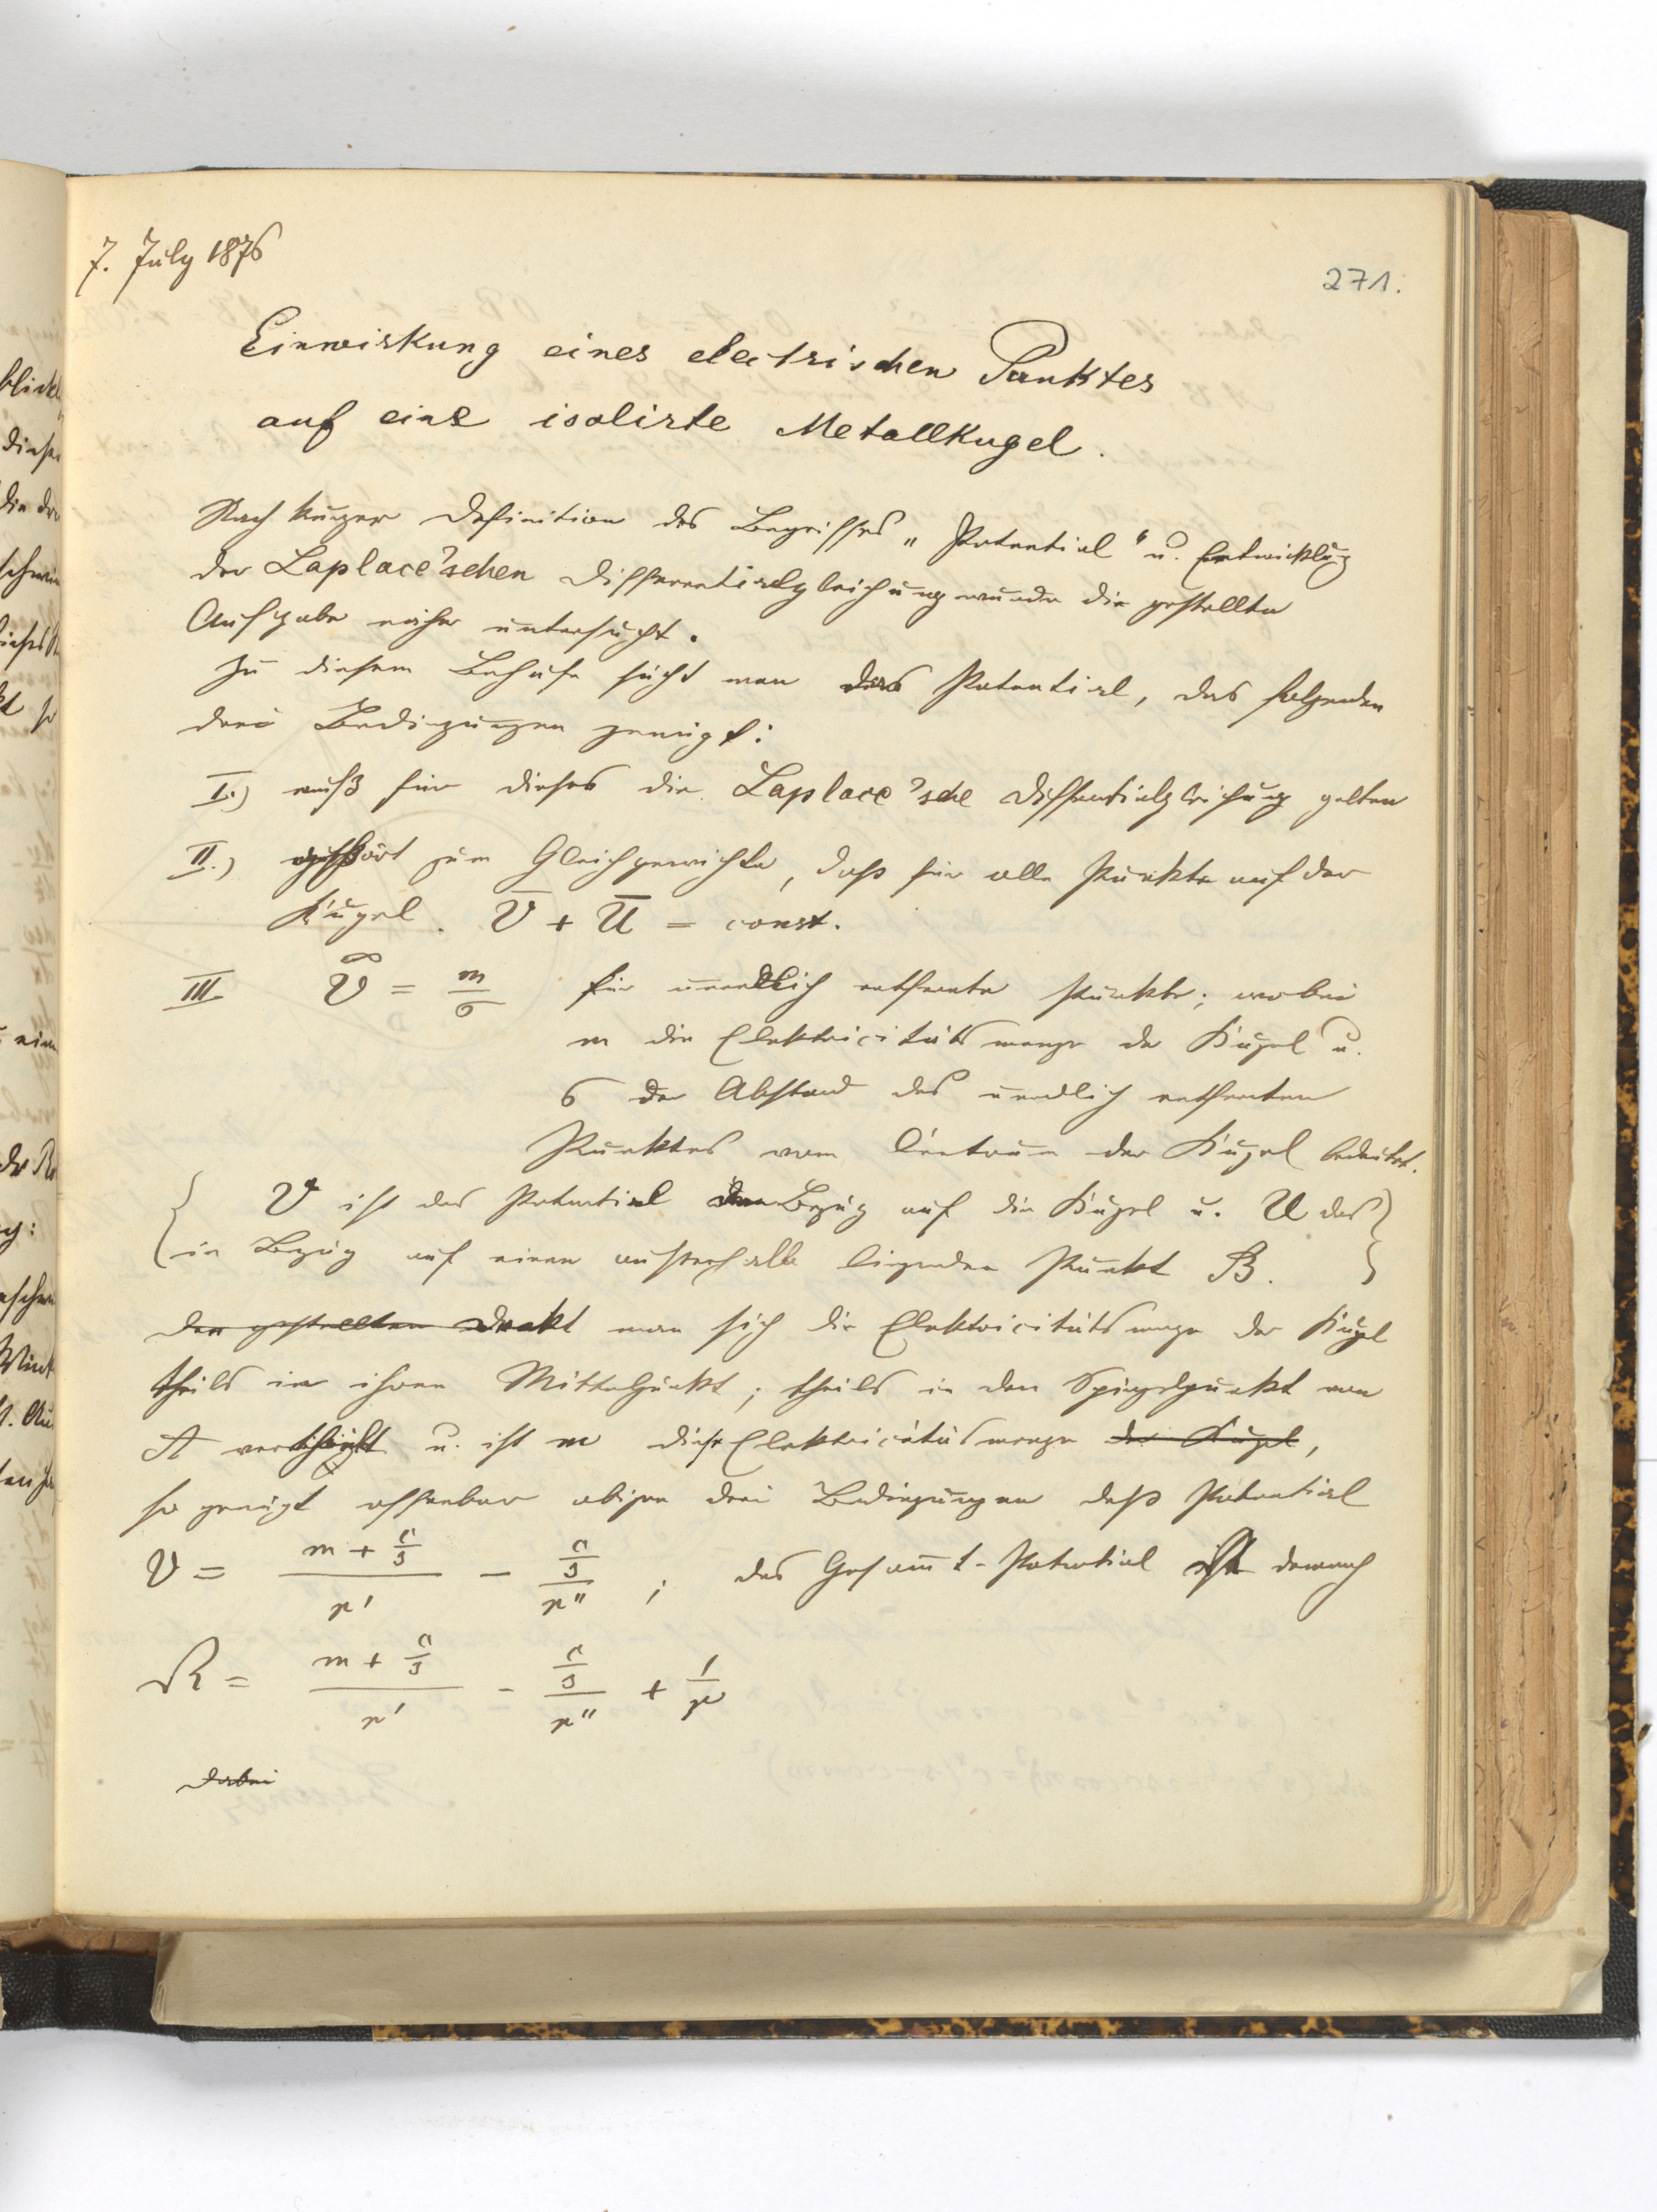 7. July 1876
271.
Einwirkung eines electrischen Punktes
auf eine isolirte Metallkugel.
Nach kurzer Definition des Begriffes „Potential“ u. Entwicklug
der Laplace'schen Differentialgleichung wurde die gestellte
Aufgabe näher untersucht.
Zu diesem Behufe sucht man das Potential, das folgenden
drei Bedingungen genügt:
I.) muß für dieses die Laplace'sche Differentialgleichung gelten
II.) gehört zum Gleichgewichte, dass für alle Punkte auf der
Kugel. V̅ + U̅ = const.
III V^∞ = m/σ für unendlich entfernte Punkte; wobei
m die Elektricitätsmenge der Kugel u.
σ der Abstand des unendlich entfernten
Punktes vom Centrum der Kugel bedeutet.
{ V ist das Potential in Bezug auf die Kugel u. U das
in Bezug auf einen ausserhalb liegenden Punkt B. }
Den gestellten Denkt man sich die Elektricitätsmenge der Kugel
theils in ihren Mittelpunkt; theils in den Spiegelpunkt von
A u. ist m diese Elektricitätsmenge der Kugel,
so genügt offenbar obigen drei Bedingungen dass Potential
V = (m + c/s)/r' - (c/s)/r'' ; das Gesam̅t-Potential ist demnach
R = (m + c/s)/r' - (c/s)/r'' + 1/r
Dabei